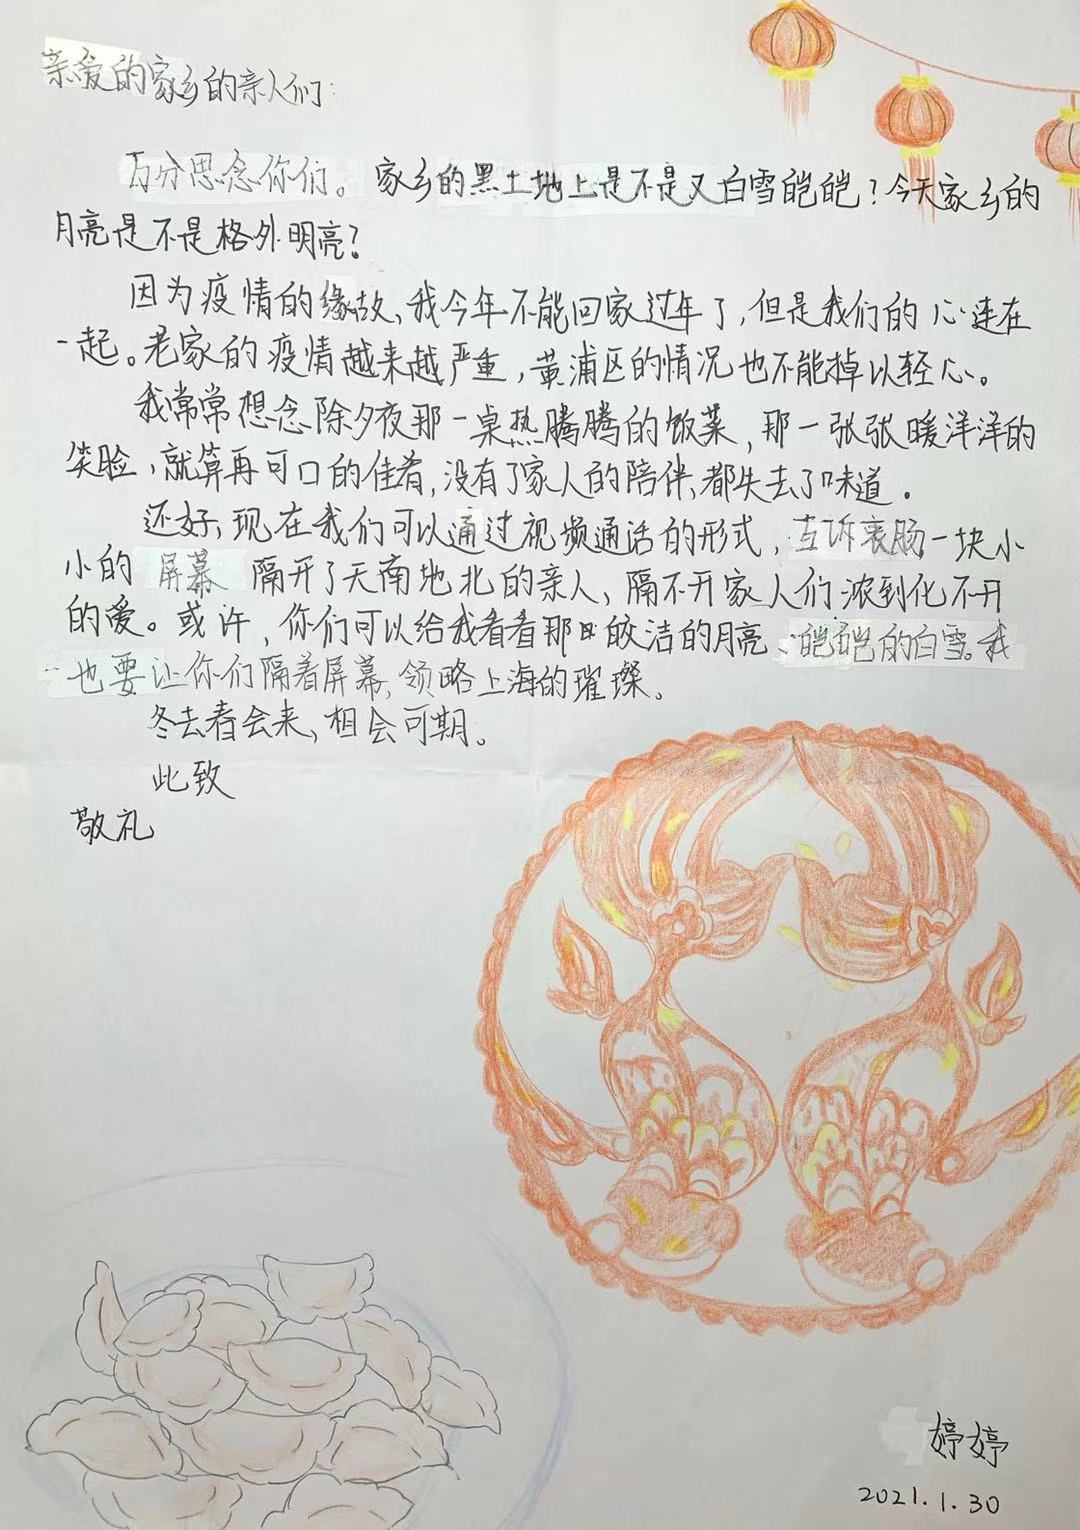 亲爱的家乡的亲人们：
百分思念你们。家乡的黑土地上是不是又白雪皑皑？今天家乡的
月亮是不是格外明亮？
因为疫情的缘故，我今年不能回家过年了，但是我们的心连在
一起。老家的疫情越来越严重，黄浦区的情况也不能掉以轻心。
我常常想念除夕夜那一桌热腾腾的饭菜，那一张张暖洋洋的
笑脸，就算再可口的佳肴，没有了家人的陪伴，都失去了味道。
还好，现在我们可以通过视频通话的形式，互诉衷肠一块小
小的屏幕隔开了天南地北的亲人，隔不开家人们浓到化不开
的爱。或许，你们可以给我看看那皎洁的月亮、皑皑的白雪。我
也要让你们隔着屏幕，领略上海的璀璨。
冬去春会来，相会可期。
此致
敬礼
婷婷
2021.1.30